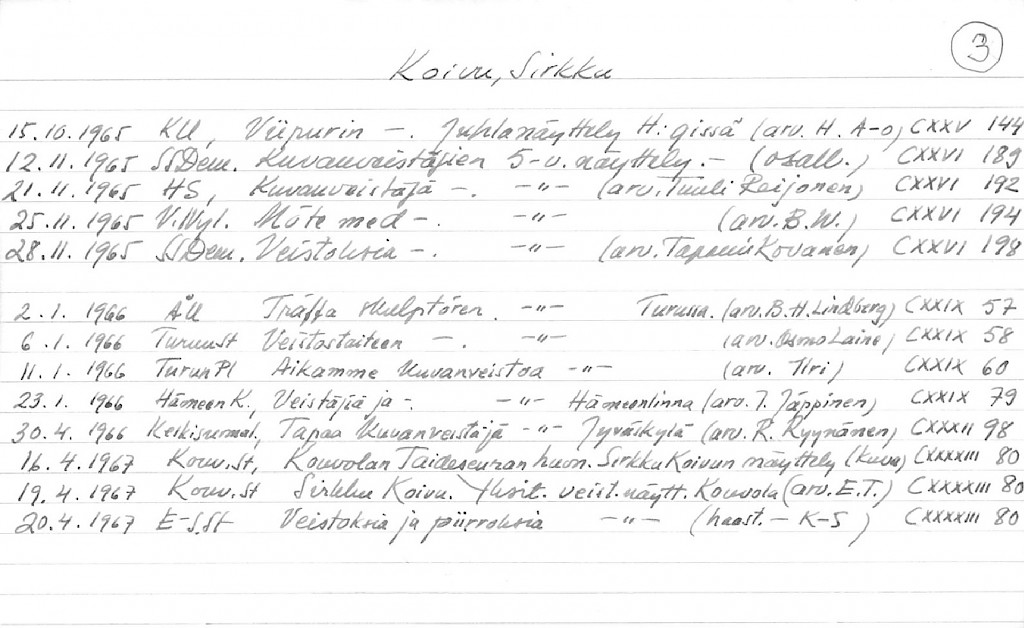 3
Koivu, Sirkku
15.10.1965 KU, Viipurin —. Juhlanäyttely H:gissä (arv. H. A-o) CXXV 144
12.11.1965 SSDem. Kuvanveistäjien 5-v. näyttely.— (osall.) CXXVI 189
21.11.1965 HS, Kuvanveistäjä —. —"— (arv. Tuuli Reijonen) CXXVI 192
25.11.1965 V.Nyl. Möte med —. —"— (arv. B.W.) CXXVI 194
28.11.1965 SSDem. Veistoksia —. —"— (arv. Tapani Kovanen) CXXVI 198
2.1. 1966 ÅU Träffa skulptören. —"— Turussa. (arv. B.H. Lindberg) CXXIX 57
6.1. 1966 Turunst Veistostaiteen —. —"— (arv. Osmo Laine) CXXIX 58
11.1. 1966 TurunPl Aikamme kuvanveistoa —"— (arv. ) CXXIX 60
23.1. 1966 Hämeen K., Veistäjiä ja —. —"— Hämeenlinna (arv. J. Jäppinen) CXXIX 79
30.4. 1966 Keskisuomal. Tapaa kuvanveistäjä —"— Jyväskylä (arv. R. Kyynänen) CXXXII 98
16.4.1967 Kouv.st, Kouvolan Taideseuran huon. Sirkku Koivun näyttely (kuva) CXXXXIII 80
19.4.1967 Kouv.st Sirkku Koivu. Yksit. veist.näytt. Kouvola (arv. E.T.) CXXXXIII 80
20.4.1967 E-S.st Veistoksia ja piirroksia —"— (haast. — K-S) CXXXXIII 80